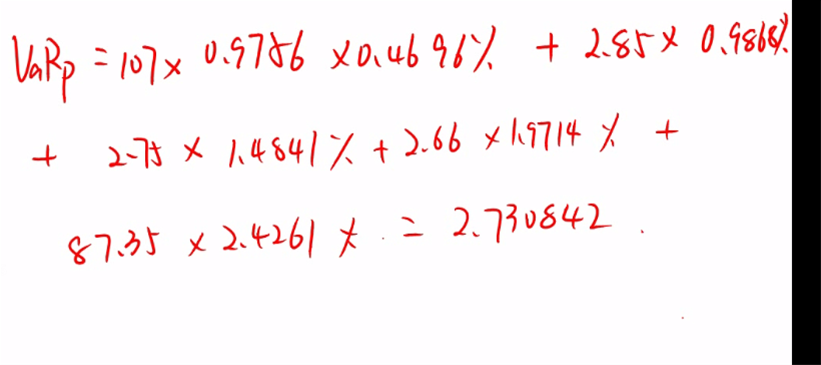 VaRp = 107 × 0.9786 × 0.4696% + 2.85 × 0.9868%
+ 2.75 × 1.4841% + 2.66 × 1.9714% +
87.35 × 2.4261% = 2.730842.